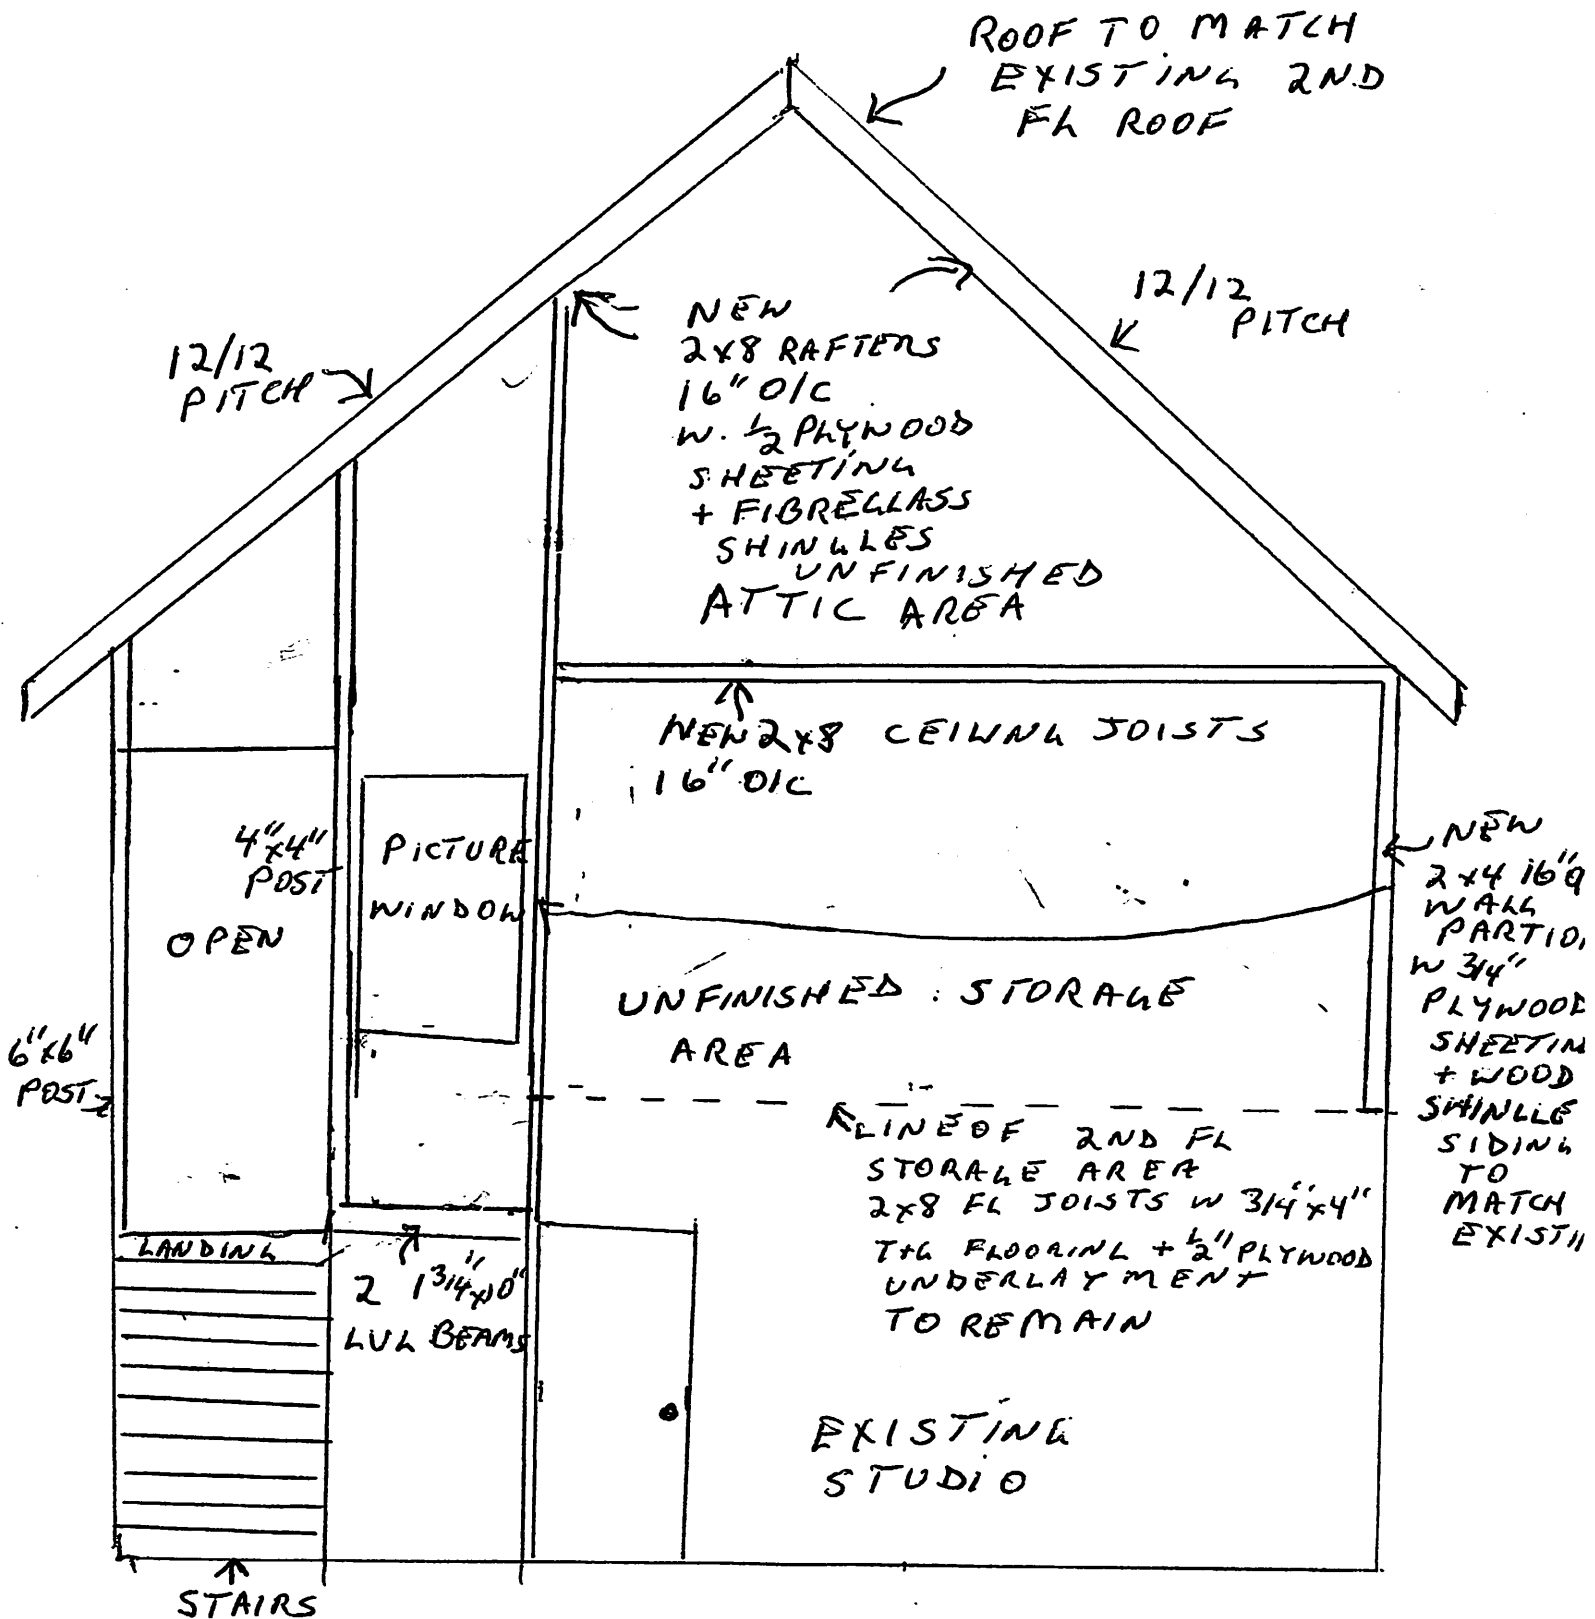 ROOF TO MATCH
EXISTING 2ND
FL ROOF
12/12
PITCH
12/12
PITCH
NEW
2x8 RAFTERS
16" O/C
W. 1/2 PLYWOOD
SHEETING
+ FIBREGLASS
SHINGLES
UNFINISHED
ATTIC AREA
NEW 2x8 CEILING JOISTS
16" O/C
4"x4"
POST
PICTURE
WINDOW
OPEN
6"x6"
POST
UNFINISHED STORAGE
AREA
NEW
2x4 16"
WALL
PARTIO
W 3/4"
PLYWOOD
SHEETIN
+ WOOD
SHINGLE
SIDING
TO
MATCH
EXISTI
LINE OF 2ND FL
STORAGE AREA
2x8 FL JOISTS W 3/4"x4"
T+G FLOORING + 1/2" PLYWOOD
UNDERLAYMENT
TO REMAIN
LANDING
2 1 3/4"x10"
LVL BEAMS
EXISTING
STUDIO
STAIRS